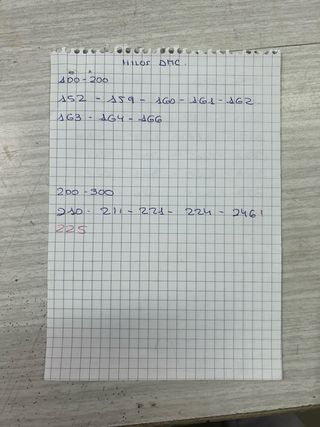 HILOS DMC.
100-200
152 - 159 - 160 - 161 - 162
163 - 164 - 166
200-300
210 - 211 - 221 - 224 - 246
225